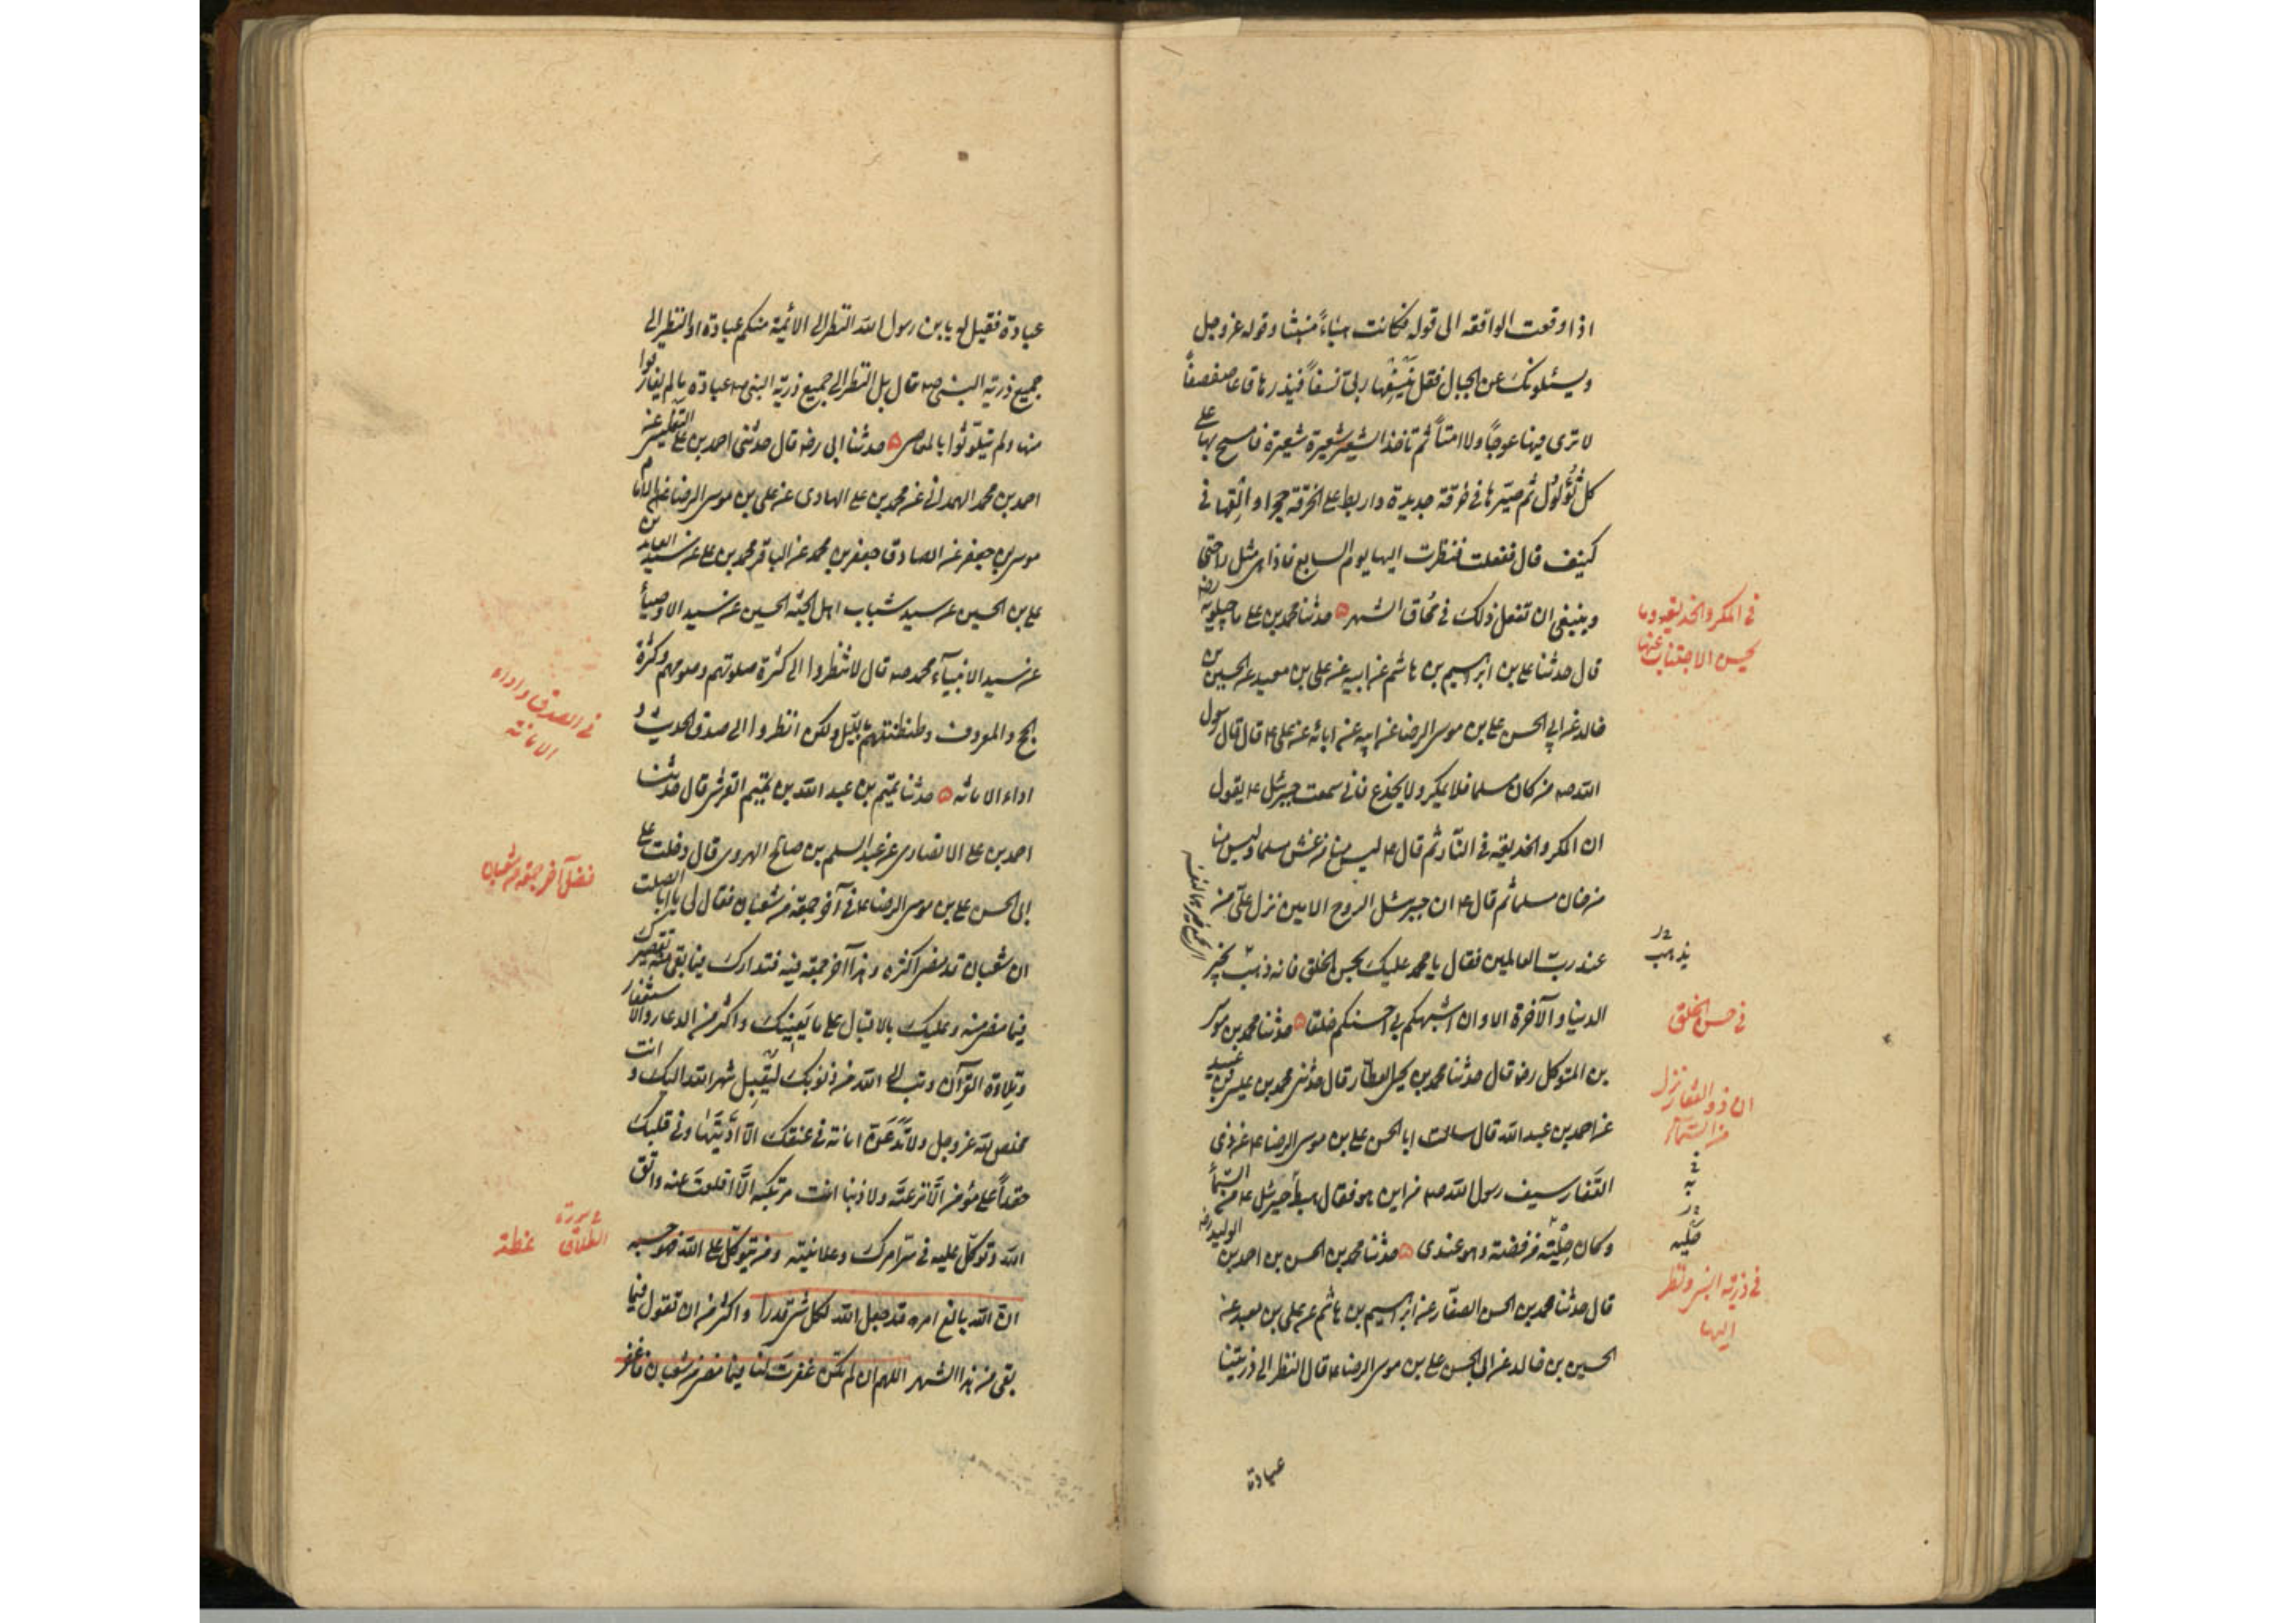 اذا وقعت الواقعه الى قوله فكانت هباءً منبثا وقوله عز وجل
ويسئلونك عن الجبال فقل ينسفها ربى نسفاً فيذرها قاعا صفصفاً
لا ترى فيها عوجاً ولا امتاً ثم تاخذ الشعير شعيرة شعيرة فامسح بها على
كل ثؤلول ثم صيّرها فى خرقة جديدة واربط على الخرقة حجرا والقها فى
كنيف قال ففعلت فنظرت اليها يوم السابع فاذا هى مثل راحتى
وينبغى ان تفعل ذلك فى محاق الشهر ه حدثنا محمد بن على ماجيلويه رضه
قال حدثنا على بن ابرهيم بن هاشم عن ابيه عن على بن معبد عن الحسين بن
خالد عن ابى الحسن على بن موسى الرضا عن ابيه عن ابائه عن على ع قال قال رسول
الله صه من كان مسلما فلا يمكر ولا يخدع فانى سمعت جبرئيل ع يقول
ان المكر والخديعه فى النار ثم قال ع ليس منا من غش مسلما وليس منا
من خان مسلما ثم قال ع ان جبرئيل الروح الامين نزل علىّ من
عند ربّ العالمين فقال يا محمد عليك بحسن الخلق فانه ذهب بخير
الدنيا والآخرة الا وان اشبهكم بى احسنكم خلقا ه حدثنا محمد بن موسى
بن المتوكل رضه قال حدثنا محمد بن يحيى العطّار قال حدثنى محمد بن عيسى بن عبيد
عن احمد بن عبد الله قال سالت ابا الحسن على بن موسى الرضا ع عن ذى
الفقار سيف رسول الله صه من اين هو فقال هبط جبرئيل ع من السمأ
وكان حليته من فضة وهو عندى ه حدثنا محمد بن الحسن بن احمد بن الوليد رضه
قال حدثنا محمد بن الحسن الصفّار عن ابرهيم بن هاشم عن على بن معبد عن
الحسين بن خالد عن ابى الحسن على بن موسى الرضا ع قال النظر الى ذريّتنا
عبادة
فى المكر والخديعه وما
يحسن الاجتناب عنها
يذهب
فى حسن الخلق
ان ذو الفقار نزل
من السمآء
فى ذرية النبى ونظر
اليها
عبادة فقيل له يابن رسول الله النظر الى الائمية منكم عبادة او النظر الى
جميع ذرية النبى صه قال بل النظر الى جميع ذرية النبى صه عبادة ما لم يفارقوا
منهاولم يتلوّثوا بالمعاصى ه حدثنا ابى رضه قال حدثنى احمد بن على التفليسى عن
احمد بن محمد الهمدانى عن محمد بن على الهادى عن على بن موسى الرضا عن الامام
موسى بن جعفر عن الصادق جعفر بن محمد عن الباقر محمد بن على عن سيد العابدين
على بن الحسين عن سيد شباب اهل الجنة الحسين عن سيد الاوصيأ
عن سيد الانبيآء محمد صه قال لا تنظروا الى كثرة صلوتهم وصومهم وكثرة
الحج والمعروف وطنطنتهم بالليل ولكن انظروا الى صدق الحديث و
اداء الامانه ه حدثنا تميم بن عبد الله بن تميم القرشى قال حدثنا
احمد بن على الانصارى عن عبد السلم بن صالح الهروى قال دخلت على
ابى الحسن على بن موسى الرضا ع فى آخر جمعة من شعبان فقال لى يا ابا الصلت
ان شعبان قد مضى اكثره وهذا آخر جمعة فيه فتدارك فيما بقى منه تقصيرك
فيما مضى منه وعليك بالاقبال على ما يعنيك واكثر من الدعاء والاستغفار
وتلاوة القرآن وتب الى الله من ذنوبك ليقبل شهر الله اليك وانت
مخلص لله عز وجل ولا تدعنّ امانة فى عنقك الّا ادّيتها وفى قلبك
حقداً على مؤمن الّا نزعته ولا ذنبا انت مرتكبه الّا اقلعت عنه واتق
الله وتوكّل عليه فى سرّ امرك وعلانيته ومن يتوكّل على الله فهو حسبه
انّ الله بالغ امره قد جعل الله لكل شى قدرا واكثر من ان تقول فيما
بقى من هذا الشهر اللهم ان لم تكن غفرت لنا فيما مضى من شعبان فاغفر
فى الصدق واداء
الامانة
فضل آخر جمعة من شعبان
سورة
الطلاق